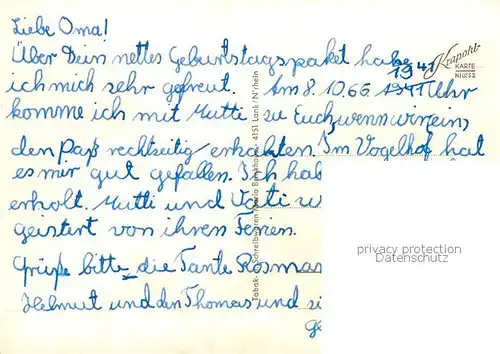 Liebe Oma!
Über Dein nettes Geburtstagspaket habe
ich mich sehr gefreut. Am 8.10.66 1941 Uhr
1941
komme ich mit Mutti zu Euch, wenn wir ein
den Paß rechtzeitig erhalten. Im Vogelhof hat
es mir gut gefallen. Ich hab
erholt. Mutti und Vati
geistert von ihren Ferien.
Grüße bitte die Tante Rosmar
Helmut und den Thomas und
Krapohl
KARTE
NEUSS 2
4151 Lank/N'rhein
privacy protection
Datenschutz